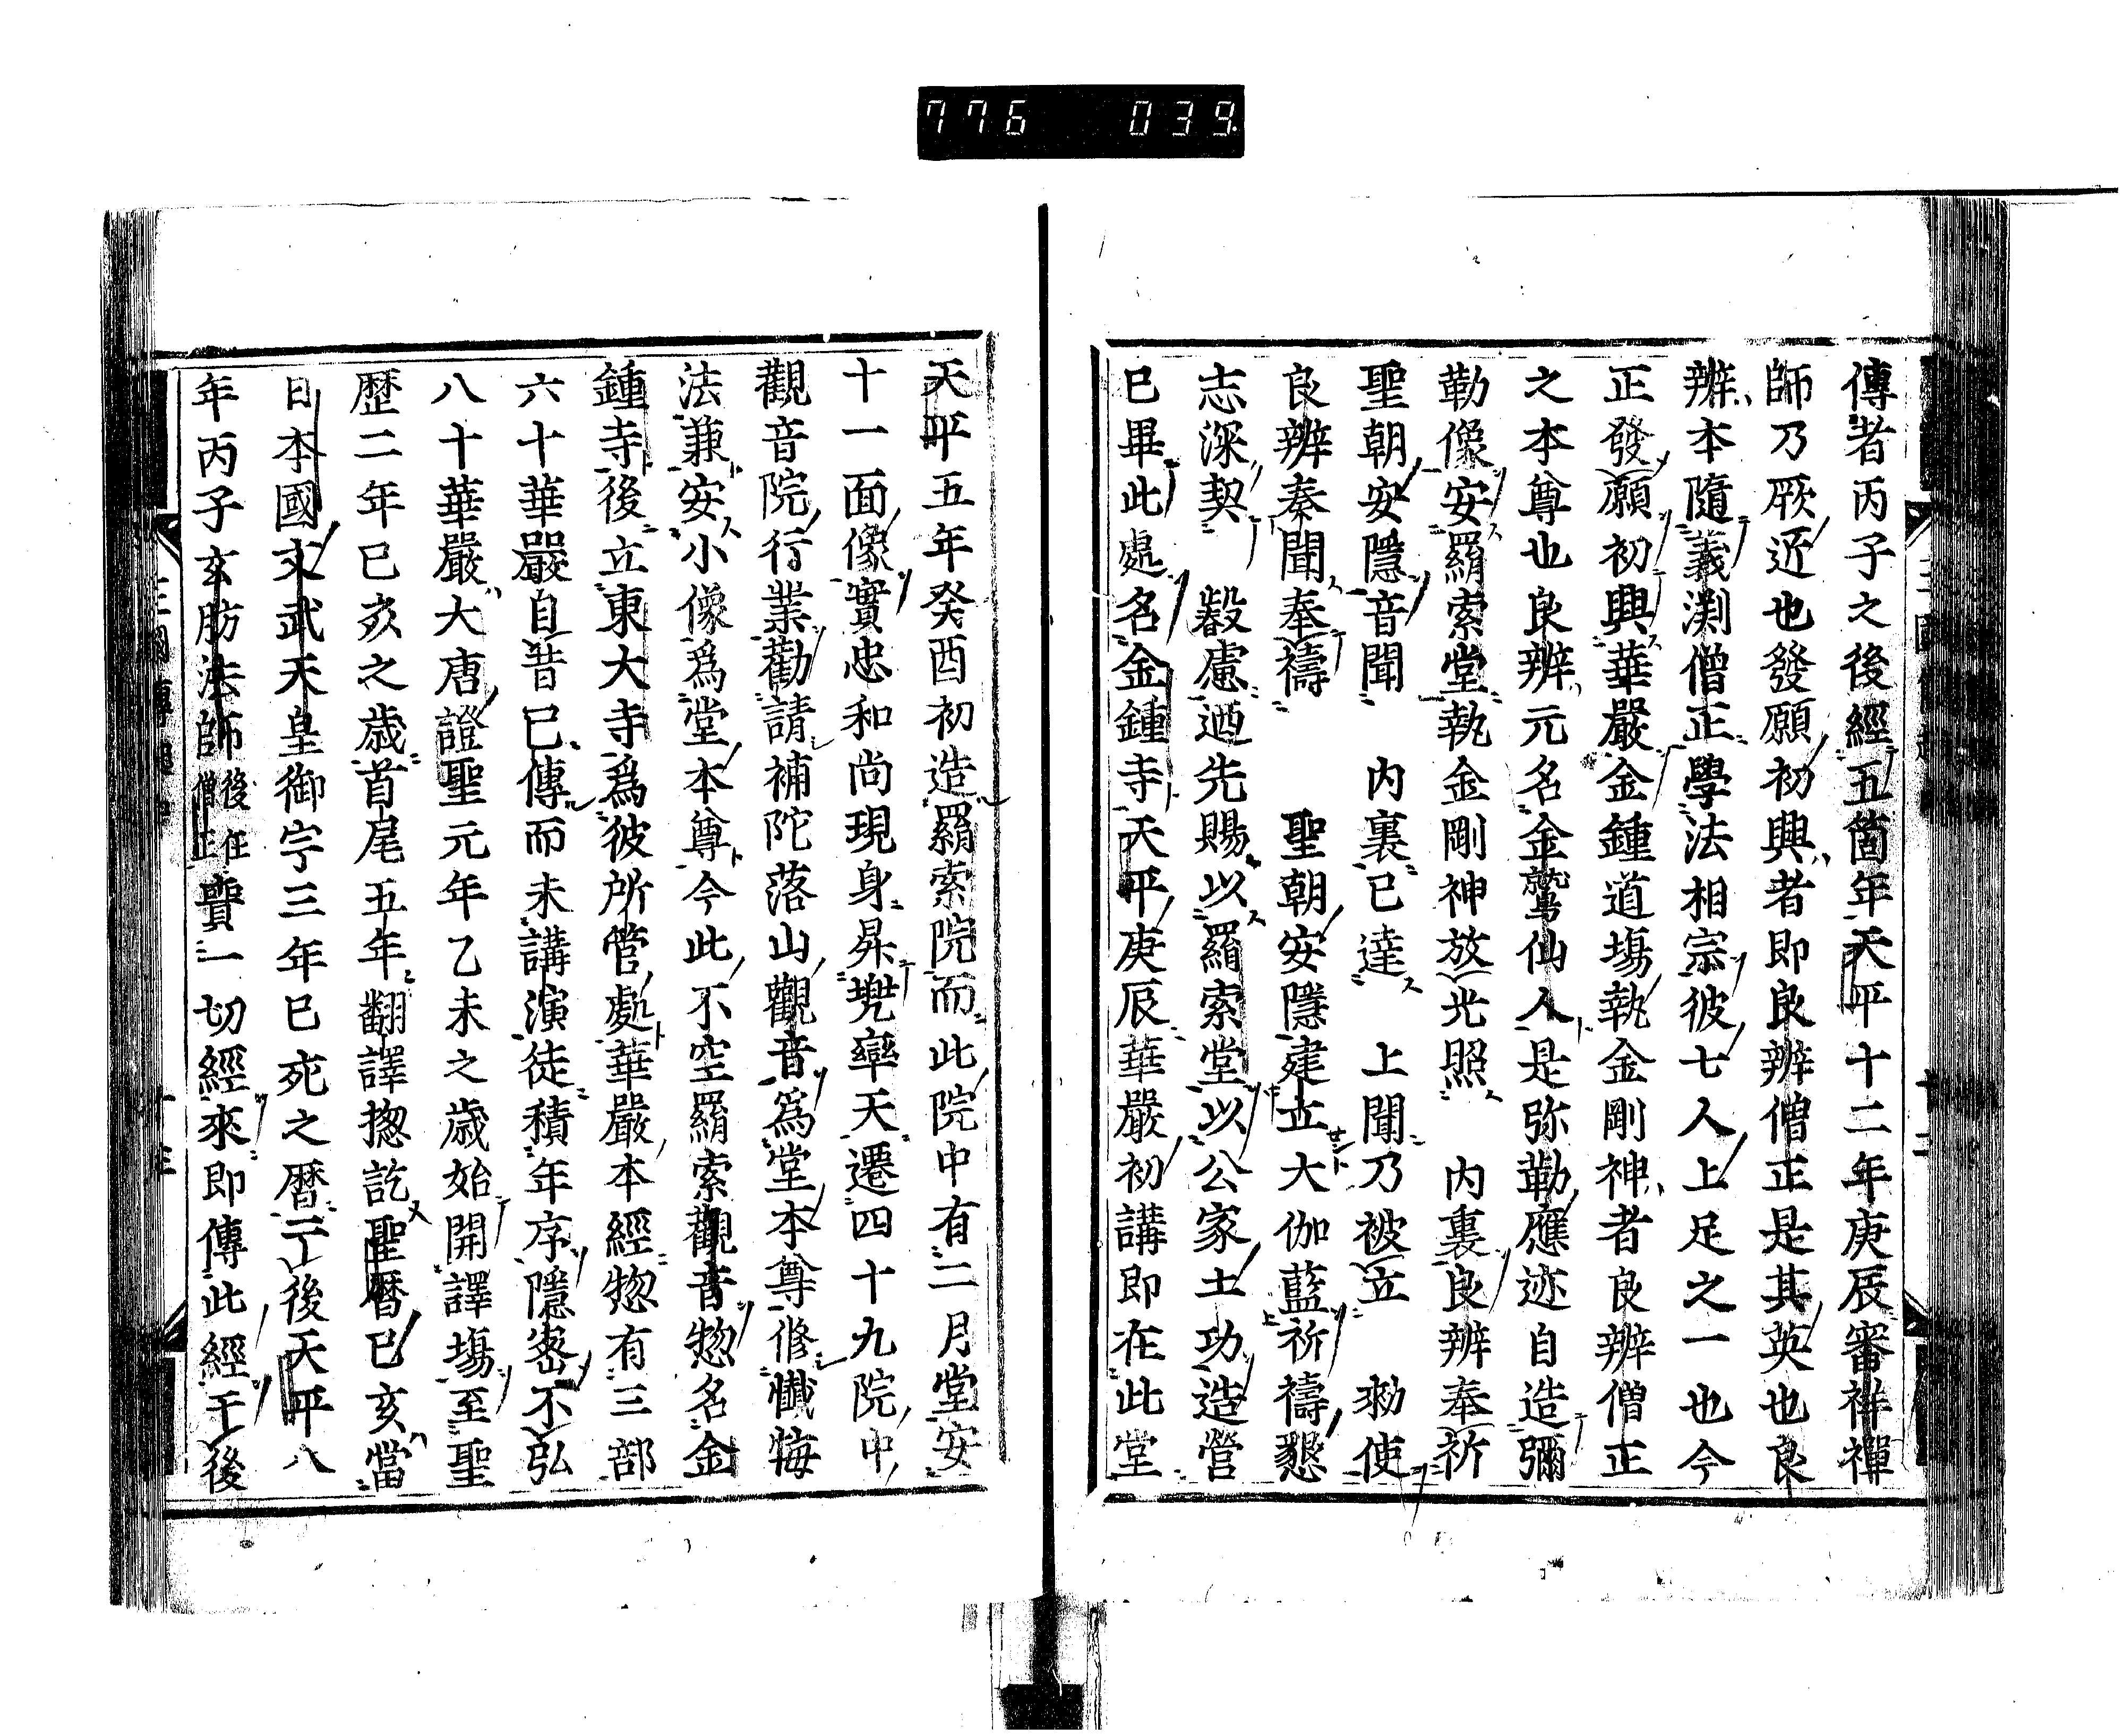 776 039
傳者丙子之後經五箇年天平十二年庚辰審祥禪
師乃厥匠也發願初興者即良辨僧正是其英也良
辨本隨義渕僧正學法相宗彼七人上足之一也今
正發願初興華嚴金鍾道塲執金剛神者良辨僧正
之本尊也良辨元名金鷲仙人是弥勒應迹自造彌
勒像安羂索堂執金剛神放光照 内裏良辨奉祈
聖朝安隱音聞 内裏已達 上聞乃被立 勑使
良辨奏聞奉禱 聖朝安隱建立大伽藍祈禱懇
志深契 叡慮迺先賜以羂索堂以公家土功造營
已畢此處名金鍾寺天平庚辰華嚴初講即在此堂
天平五年癸酉初造羂索院而此院中有二月堂安
十一面像實忠和尚現身昇兠率天遷四十九院中
觀音院行業勸請補陀落山觀音爲堂本尊修懺悔
法兼安小像爲堂本尊今此不空羂索觀音惣名金
鍾寺後立東大寺爲彼所管處華嚴本經惣有三部
六十華嚴自昔已傳而未講演徒積年序隱密不弘
八十華嚴大唐證聖元年乙未之歳始開譯塲至聖
歷二年已亥之歳首尾五年翻譯揔訖聖曆已亥當
日本國文武天皇御宇三年已死之曆于後天平八
年丙子玄昉法師後任僧正賷一切經來即傳此經于後